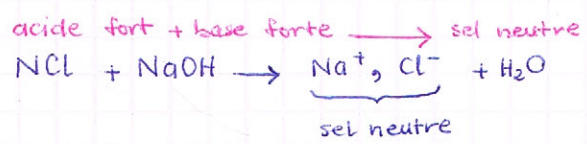 acide fort + base forte ⟶ sel neutre
NCl + NaOH ⟶ Na⁺, Cl⁻ + H₂O
sel neutre